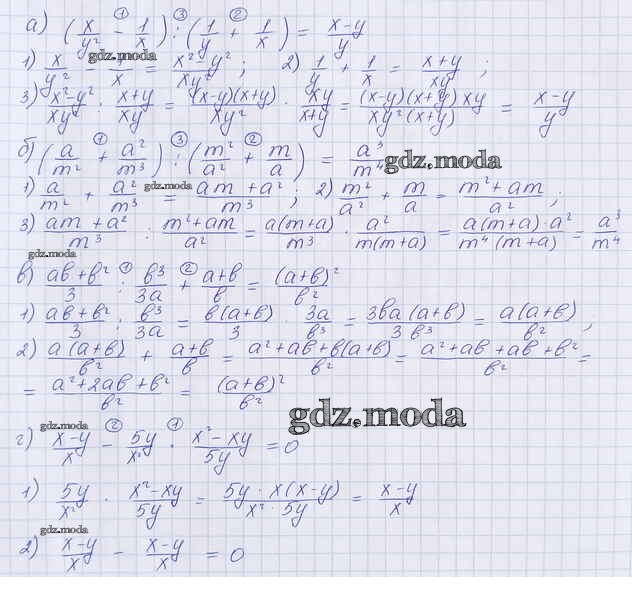 а) (x/y² - 1/x) : (1/y + 1/x) = (x-y)/y
1) x/y² - 1/x = (x² - y²)/(xy²) ; 2) 1/y + 1/x = (x+y)/(xy) ;
3) (x²-y²)/(xy²) : (x+y)/(xy) = (x-y)(x+y)/(xy²) · xy/(x+y) = (x-y)(x+y)xy/(xy²(x+y)) = (x-y)/y
б) (a/m² + a²/m³) : (m²/a² + m/a) = a³/m⁴
1) a/m² + a²/m³ = (am + a²)/m³ ; 2) m²/a² + m/a = (m² + am)/a² ;
3) (am + a²)/m³ : (m² + am)/a² = a(m+a)/m³ · a²/(m(m+a)) = a(m+a)·a²/(m⁴(m+a)) = a³/m⁴
в) (ab + b²)/3 : b³/3a + (a+b)/b = (a+b)²/b²
1) (ab + b²)/3 : b³/3a = b(a+b)/3 · 3a/b³ = 3ba(a+b)/(3b³) = a(a+b)/b² ,
2) a(a+b)/b² + (a+b)/b = (a² + ab + b(a+b))/b² = (a² + ab + ab + b²)/b² =
= (a² + 2ab + b²)/b² = (a+b)²/b²
г) (x-y)/x - 5y/x² · (x² - xy)/5y = 0
1) 5y/x² · (x² - xy)/5y = 5y · x(x-y)/(x² · 5y) = (x-y)/x
2) (x-y)/x - (x-y)/x = 0
gdz.moda
gdz.moda
gdz.moda
gdz.moda
gdz.moda
gdz.moda
gdz.moda